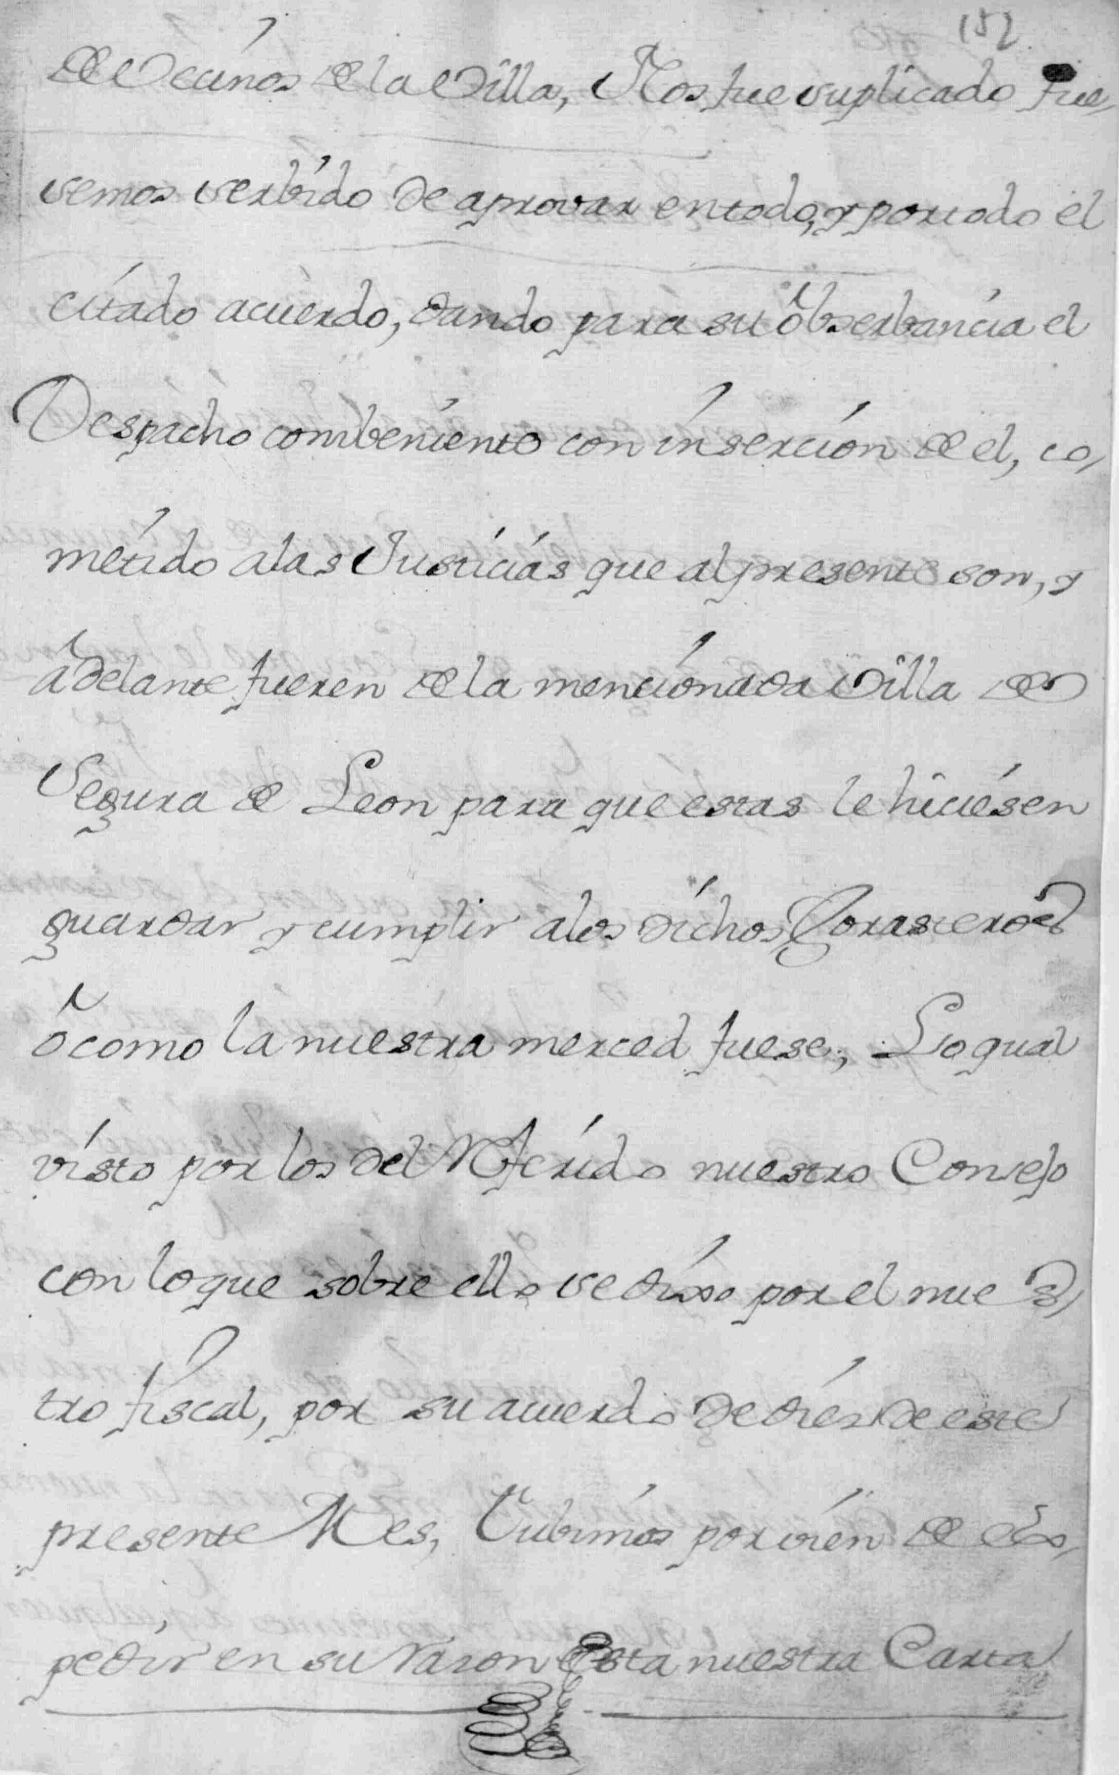 152
de Vecinos de la Villa, Nos fue suplicado fue,
semos serbido de aprovar en todo, y por todo el
citado acuerdo, dando para su observancia el
Despacho combeniente con insercion de el, co,
metido a las Justicias que al presente son, y
adelante fueren de la mencionada Villa de
Segura de Leon para que estas le hiciesen
guardar y cumplir a los dichos Forasteros
ô como la nuestra merced fuese; Lo qual
visto por los del Referido nuestro Consejo
con lo que sobre ello se dixo por el nues,
tro fiscal, por su acuerdo de dies de este
presente Mes, Tubimos por vien de ex,
pedir en su razon esta nuestra Carta